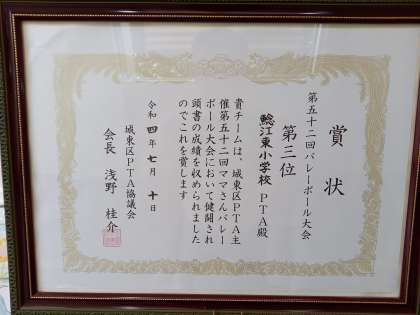 賞状
第五十二回バレーボール大会
第三位
鯰江東小学校 PTA殿
貴チームは、城東区PTA主
催第五十二回ママさんバレー
ボール大会において健闘され
頭書の成績を収められました
のでこれを賞します
令和四年七月十日
城東区PTA協議会
会長 浅野 桂介